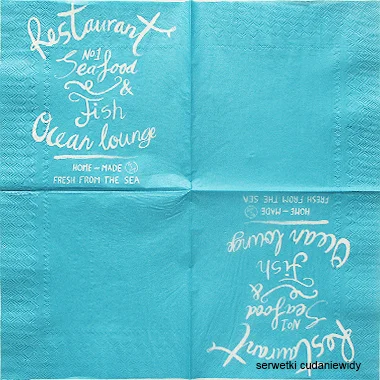 Restaurant
No1
Seafood
&
Fish
Ocean lounge
HOME - MADE
FRESH FROM THE SEA
FRESH FROM THE SEA
HOME - MADE
Ocean lounge
Fish
&
Seafood
No1
Restaurant
serwetki cudaniewidy